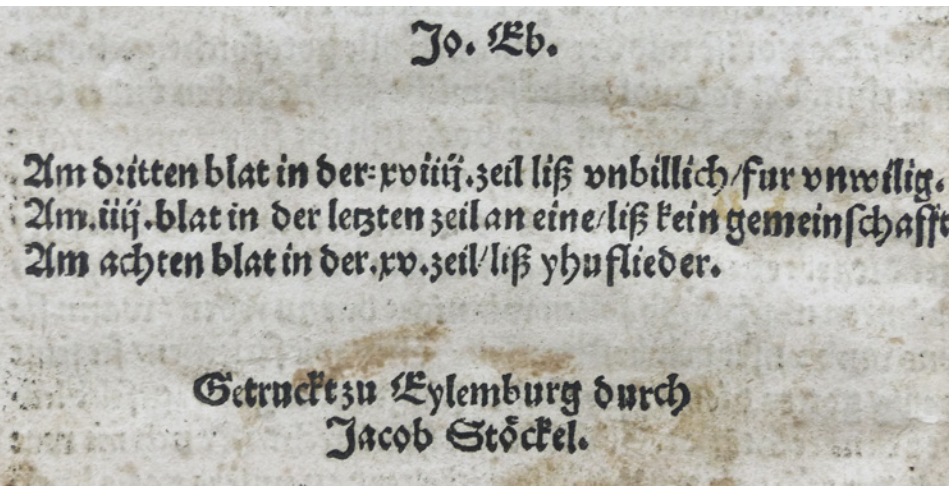 Jo. Eb.
Am dritten blat in der: xviiij. zeil liß vnbillich/fur vnwilig.
Am. iiij. blat in der letzten zeil an eine/liß kein gemeinschafft
Am achten blat in der. xv. zeil/liß yhu flieder.
Getruckt zu Eylemburg durch
Jacob Stöckel.